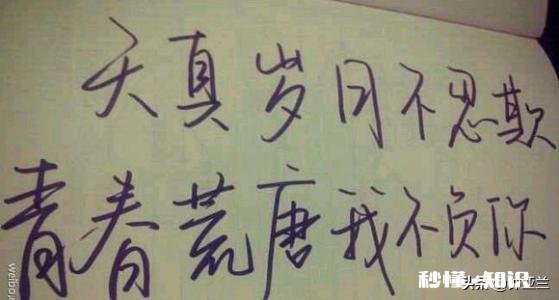 天真岁月不忍欺
青春荒唐我不负你
秒懂の知识
头条